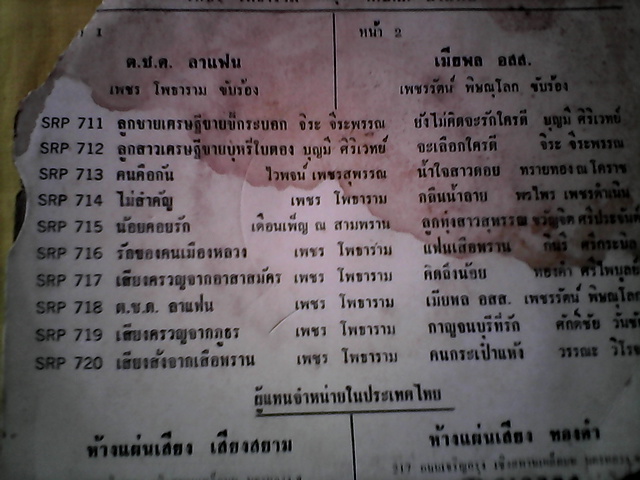 หน้า 2
ต.ช.ด. ลาแฟน เมียพล อสส.
เพชร โพธาราม ขับร้อง เพชรรัตน์ พิษณุโลก ขับร้อง
SRP 711 ลูกชายเศรษฐีขายขี้กระบอก จิระ จิระพรรณ ยังไม่คิดจะรักใครดี บุญมี ศิริเวทย์
SRP 712 ลูกสาวเศรษฐีขายบุหรี่ใบตอง บุญมี ศิริเวทย์ จะเลือกใครดี จิระ จีระพรรณ
SRP 713 คนคือกัน ไวพจน์ เพชรสุพรรณ น้ำใจสาวดอย ทรายทอง ณ โคราช
SRP 714 ไม่สำคัญ เพชร โพธาราม กลิ่นน้ำลาย พรไพร เพชรดำเนิน
SRP 715 น้อยคอยรัก เดือนเพ็ญ ณ สามพราน ลูกทุ่งสาวสุพรรณ ขวัญจิต ศรีประจันต์
SRP 716 รักของคนเมืองหลวง เพชร โพธาราม แฟนเสือพราน
SRP 717 เสียงครวญจากอาสาสมัคร เพชร โพธาราม คิดถึงน้อย
SRP 718 ต.ช.ด. ลาแฟน เพชร โพธาราม เมียพล อสส. เพชรรัตน์ พิษณุโลก
SRP 719 เสียงครวญจากภูธร เพชร โพธาราม กาญจนบุรีที่รัก ศักดิ์ชัย
SRP 720 เสียงสั่งจากเสือพราน เพชร โพธาราม คนกระเป๋าแห้ง วรรณะ
ผู้แทนจำหน่ายในประเทศไทย
ห้างแผ่นเสียง เสียงสยาม ห้างแผ่นเสียง ทองคำ
217 ถนนเจริญกรุง